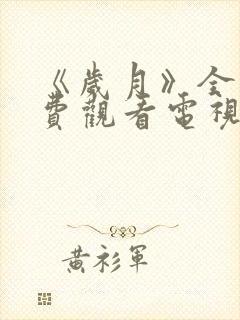 《歲月》全
費觀看電視
黃衫軍